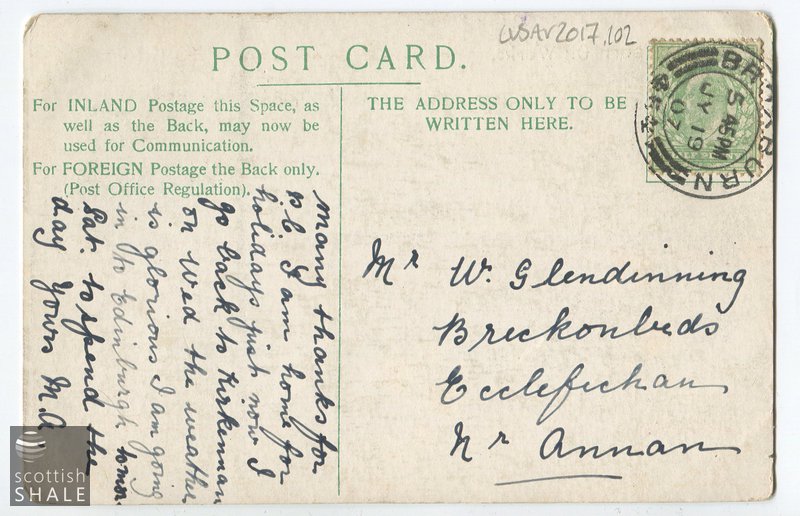 LVSAV2017.102
POST CARD.
For INLAND Postage this Space, as
well as the Back, may now be
used for Communication.
For FOREIGN Postage the Back only.
(Post Office Regulation).
THE ADDRESS ONLY TO BE
WRITTEN HERE.
5 45PM
JY 19
07
many thanks for
p.c I am home for
holidays just now I
go back to
on Wed the weather
is glorious I am going
in to Edinburgh tomor
Sat. to spend the
day Yours M.A
Mr W. Glendinning
Breckonbeds
Ecclefechan
Nr Annan
scottish
SHALE